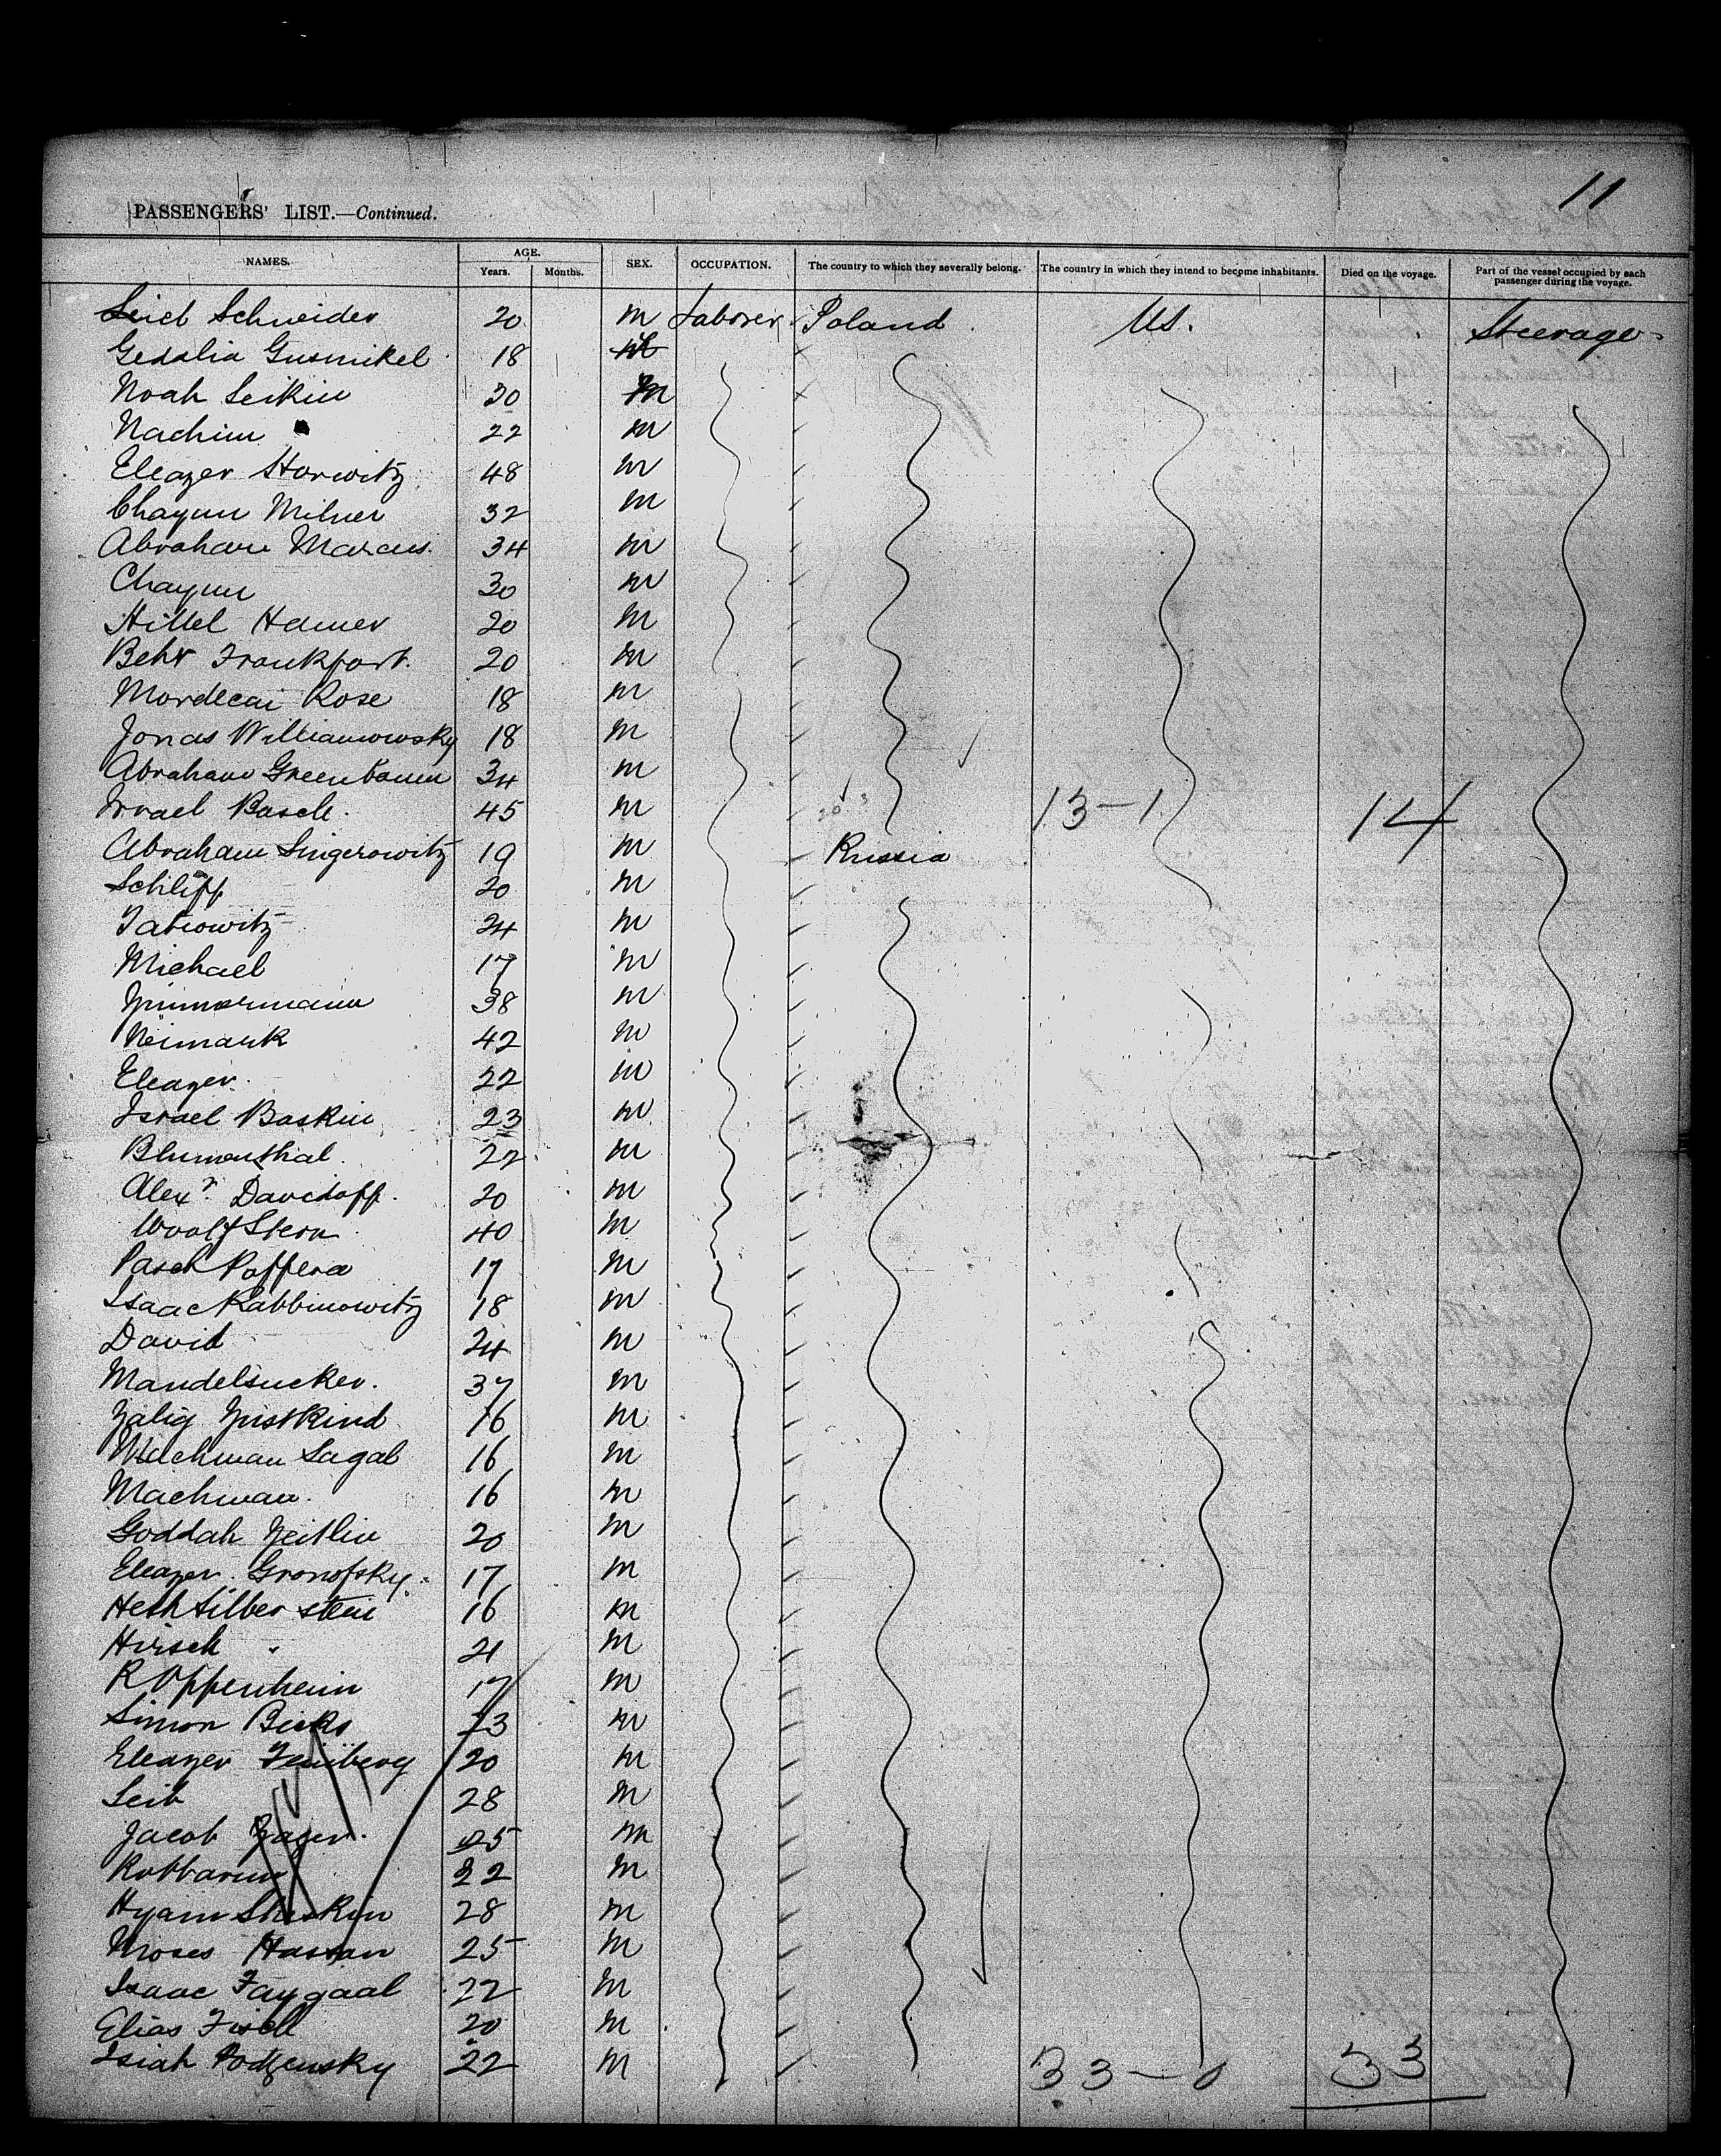 11
PASSENGERS' LIST.—Continued.
NAMES. AGE. Years. Months. SEX. OCCUPATION. The country to which they severally belong. The country in which they intend to become inhabitants. Died on the voyage. Part of the vessel occupied by each passenger during the voyage.
Schneider 20 M Laborer Poland US. Steerage
Gedalia 18
Noah 30 M
Nachim 22 M
Eleazer Horwitz 48 M
Chayim Milner 32 M
Abraham Marcus 34 M
Chayim 30 M
Hillel Hamer 20 M
Behr Frankfort 20 M
Mordecai Rose 18 M
Jonas 18 M
Abraham Greenbaum 34 M
Israel Basch 45 M 13-1 14
Abraham Singerowitz 19 M Russia
Schliff 20 M
24 M
Michael 17 M
Zimmermann 38 M
Neimark 42 M
Eleazer 22 M
Israel Baskin 23 M
Blumenthal 22 M
Alexr. Davidoff 20 M
Woolf Stern 40 M
17 M
Isaac Rabbinowitz 18 M
David 24 M
Mandelsucker 37 M
Zalig 16 M
Sagal 16 M
Machman 16 M
Goddah Zeitlin 20 M
Eleazer Gronofsky 17 M
Silberstein 16 M
Hirsch " 21 M
R Oppenheim 17 M
Simon 23 M
Eleazer 20 M
Leib 28 M
Jacob 25 M
22 M
Hyam 28 M
Moses Hassan 25 M
Isaac Faygaal 22 M
Elias Fisch 20 M
Isiah Podzensky 22 M 33-0 33